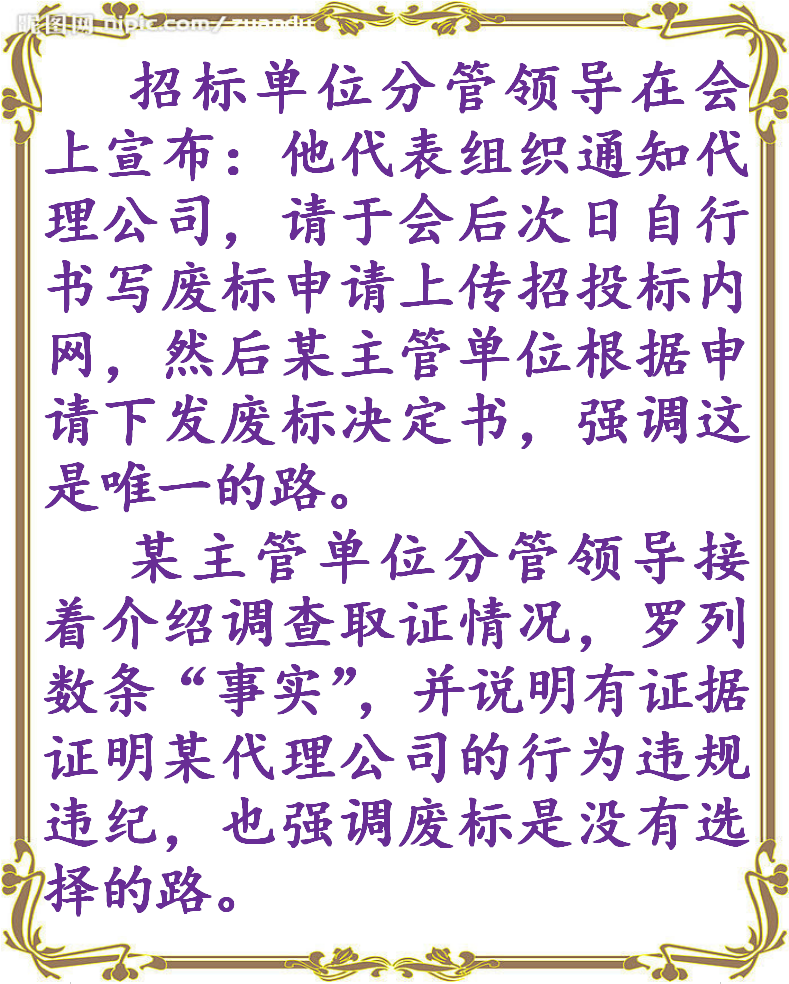 昵图网 nipic.com/zuandu
招标单位分管领导在会
上宣布：他代表组织通知代
理公司，请于会后次日自行
书写废标申请上传招投标内
网，然后某主管单位根据申
请下发废标决定书，强调这
是唯一的路。
某主管单位分管领导接
着介绍调查取证情况，罗列
数条“事实”，并说明有证据
证明某代理公司的行为违规
违纪，也强调废标是没有选
择的路。